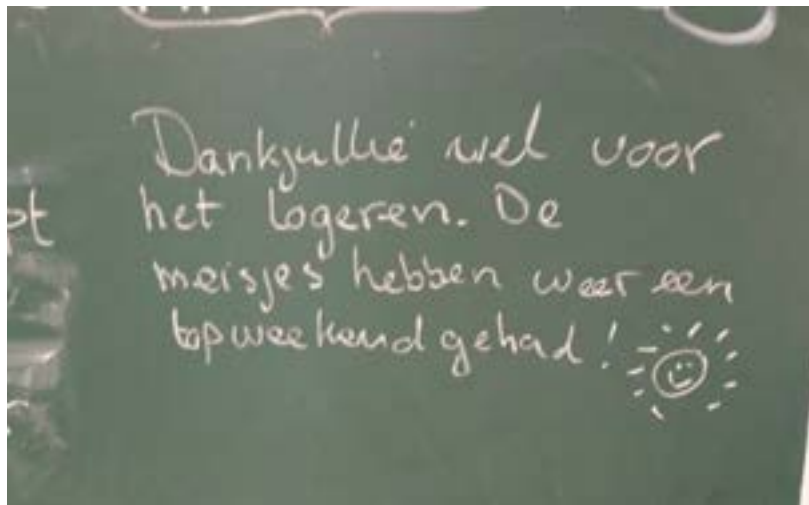 Dankjullie wel voor
het logeren. De
meisjes hebben weer een
topweekend gehad!